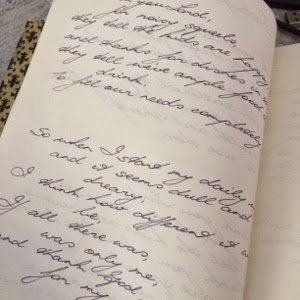 you Lord,
noisy squeels,
they tell the kids are happy
and thanks for dishes
they tell we've ample food
drink.
to fill our needs completely
So when I start my daily
and it seems dull and
dreary,
I think how different it
be
If all there was,
was only me,
and thank God
for my